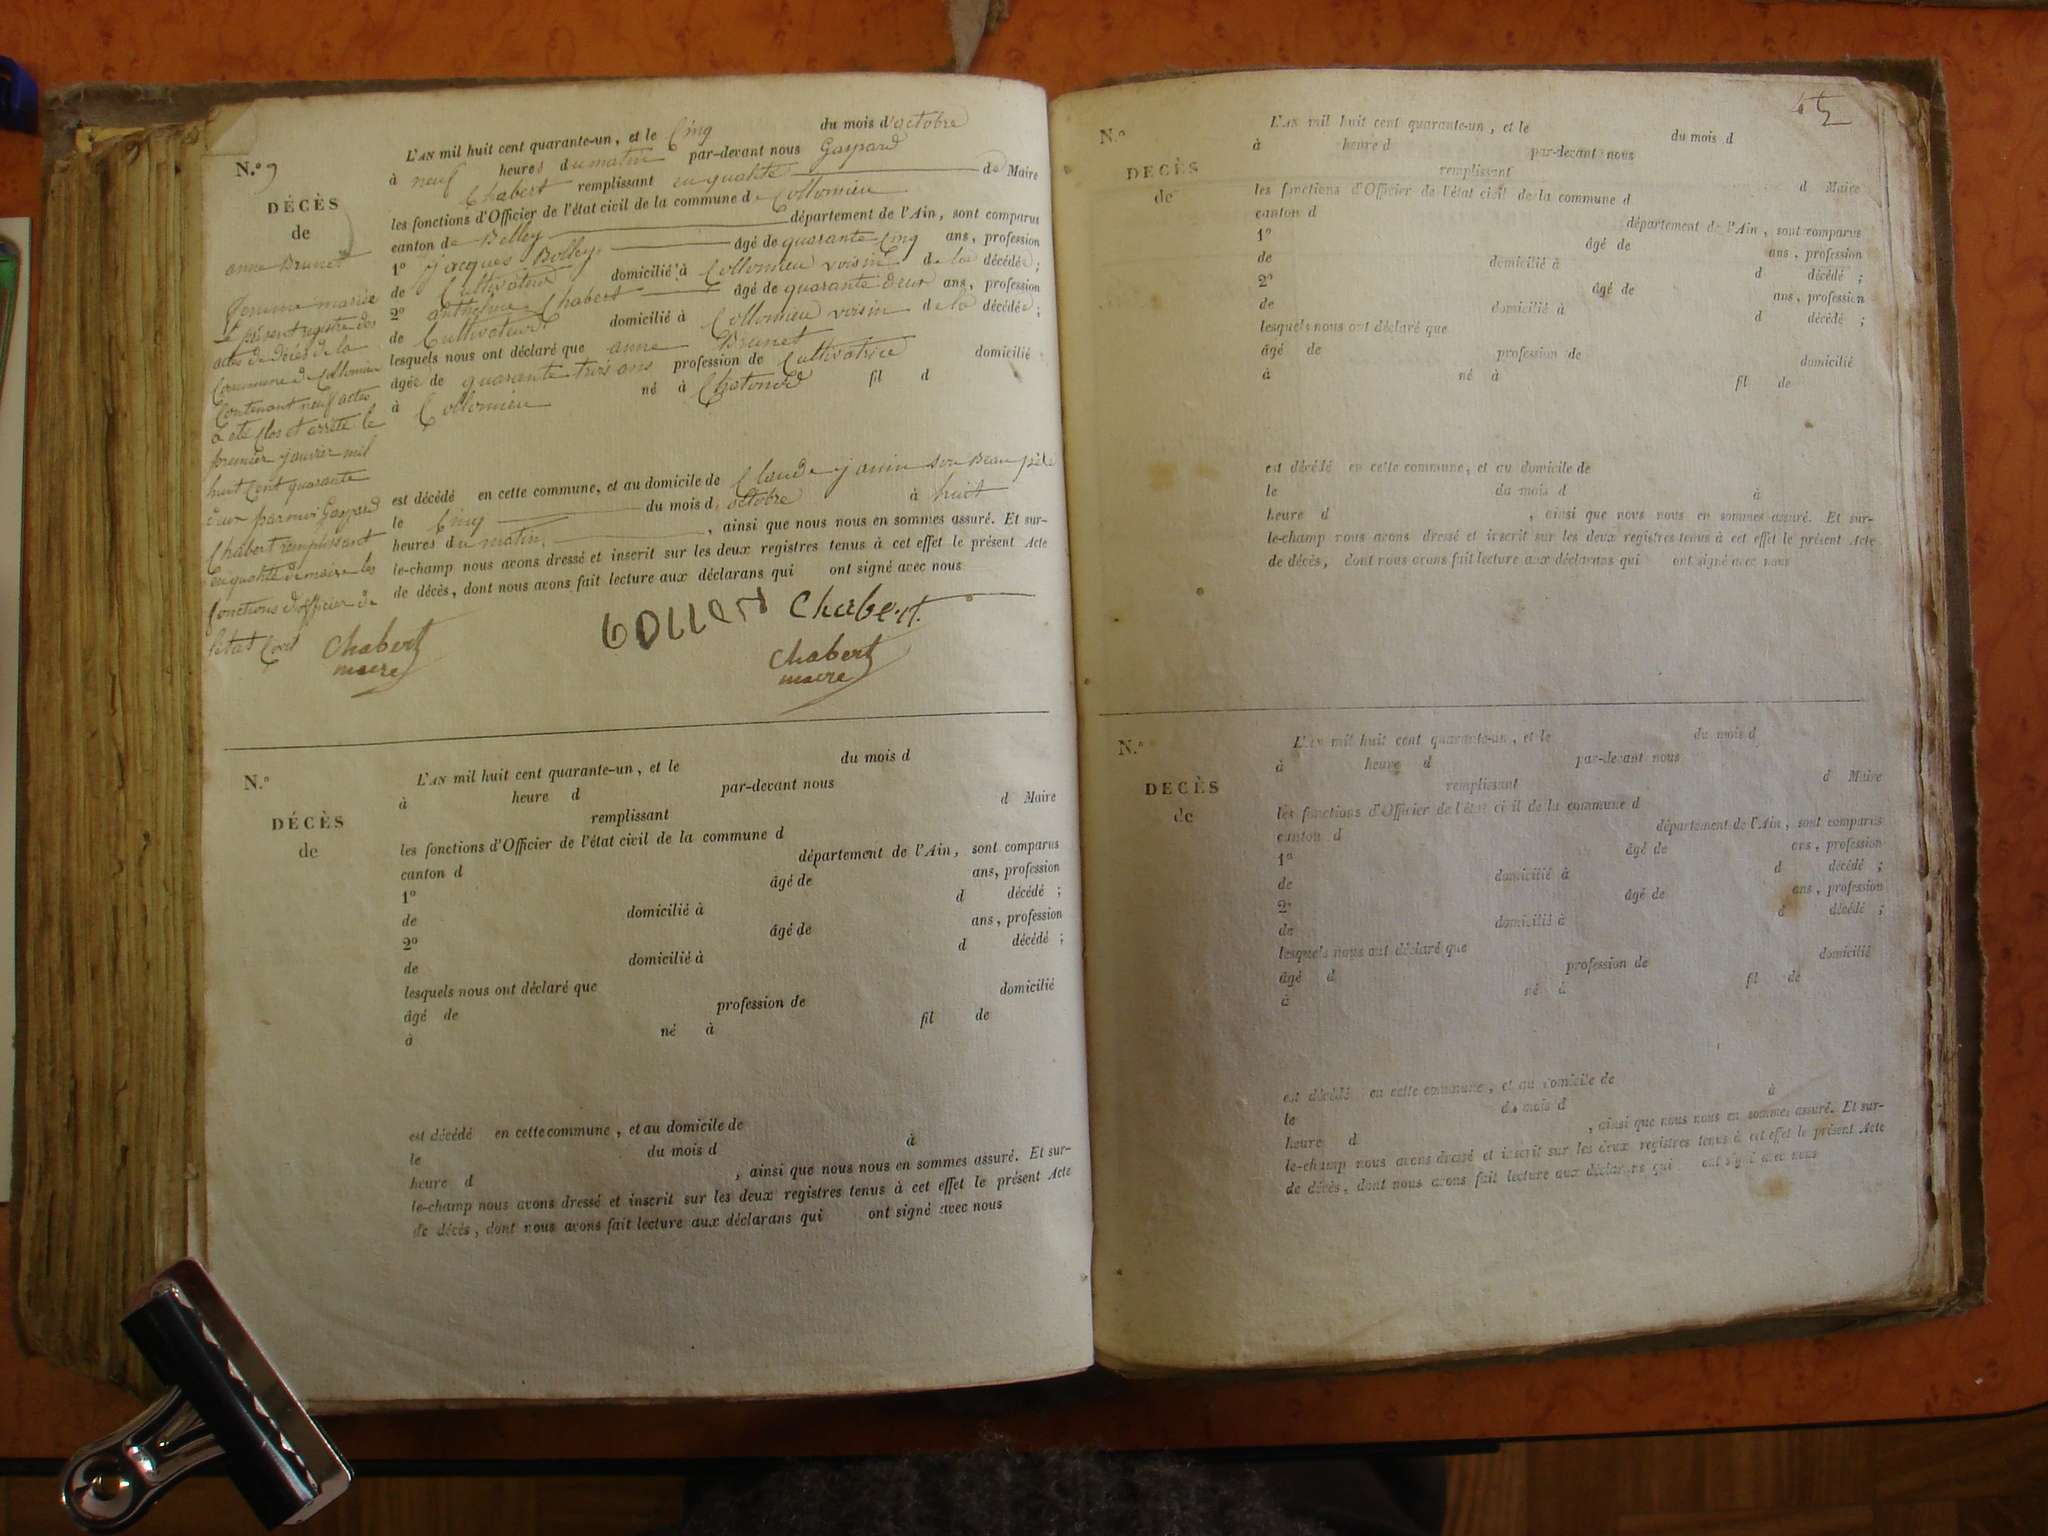 N.º 9
DÉCÈS
de
anne Brunet
femme mariée
Le présent registre des
actes de Décès de la
Commune de Collomieu
Contenant neuf actes
a été Clos et arrêté le
premier janvier mil
huit Cent quarante
deux par moi Gaspard
Chabert remplissant
en qualité de maire les
fonctions d'officier de
l'état Civil
Chabert
maire
L'AN mil huit cent quarante-un, et le Cinq du mois d'octobre
à neuf heures du matin par-devant nous Gaspard
Chabert remplissant en qualité de Maire
les fonctions d'Officier de l'état civil de la commune de Collomieu
canton de Belley département de l'Ain, sont comparus
1º Jacques Bolley âgé de quarante Cinq ans, profession
de Cultivateur domicilié à Collomieu voisin de la décédée;
2º anthelme Chabert âgé de quarante deux ans, profession
de Cultivateur domicilié à Collomieu voisin de la décédée;
lesquels nous ont déclaré que anne Brunet
âgée de quarante trois ans profession de Cultivatrice domicilié
à Collomieu né à Chatonod fil d
est décédé en cette commune, et au domicile de Claude janin son Beau père
le Cinq du mois d'octobre à huit
heures du matin, ainsi que nous nous en sommes assuré. Et sur-
le-champ nous avons dressé et inscrit sur les deux registres tenus à cet effet le présent Acte
de décès, dont nous avons fait lecture aux déclarans qui ont signé avec nous
Chabert
Chabert
maire
N.º
DÉCÈS
de
L'AN mil huit cent quarante-un, et le du mois d
à heure d par-devant nous
remplissant d Maire
les fonctions d'Officier de l'état civil de la commune d
canton d département de l'Ain, sont comparus
1º âgé de ans, profession
de domicilié à d décédé;
2º âgé de ans, profession
de domicilié à d décédé;
lesquels nous ont déclaré que
âgé de profession de domicilié
à né à fil de
est décédé en cette commune, et au domicile de
le du mois d à
heure d , ainsi que nous nous en sommes assuré. Et sur-
le-champ nous avons dressé et inscrit sur les deux registres tenus à cet effet le présent Acte
de décès, dont nous avons fait lecture aux déclarans qui ont signé avec nous
N.º
DÉCÈS
de
L'AN mil huit cent quarante-un, et le du mois d
à heure d par-devant nous
remplissant d Maire
les fonctions d'Officier de l'état civil de la commune d
canton d département de l'Ain, sont comparus
1º âgé de ans, profession
de domicilié à d décédé;
2º âgé de ans, profession
de domicilié à d décédé;
lesquels nous ont déclaré que
âgé de profession de domicilié
à né à fil de
est décédé en cette commune, et au domicile de
le du mois d à
heure d , ainsi que nous nous en sommes assuré. Et sur-
le-champ nous avons dressé et inscrit sur les deux registres tenus à cet effet le présent Acte
de décès, dont nous avons fait lecture aux déclarans qui ont signé avec nous
N.º
DÉCÈS
de
L'AN mil huit cent quarante-un, et le du mois d
à heure d par-devant nous
remplissant d Maire
les fonctions d'Officier de l'état civil de la commune d
canton d département de l'Ain, sont comparus
1º âgé de ans, profession
de domicilié à d décédé;
2º âgé de ans, profession
de domicilié à d décédé;
lesquels nous ont déclaré que
âgé d profession de domicilié
à né à fil de
est décédé en cette commune, et au domicile de
le du mois d à
heure d , ainsi que nous nous en sommes assuré. Et sur-
le-champ nous avons dressé et inscrit sur les deux registres tenus à cet effet le présent Acte
de décès, dont nous avons fait lecture aux déclarans qui ont signé avec nous